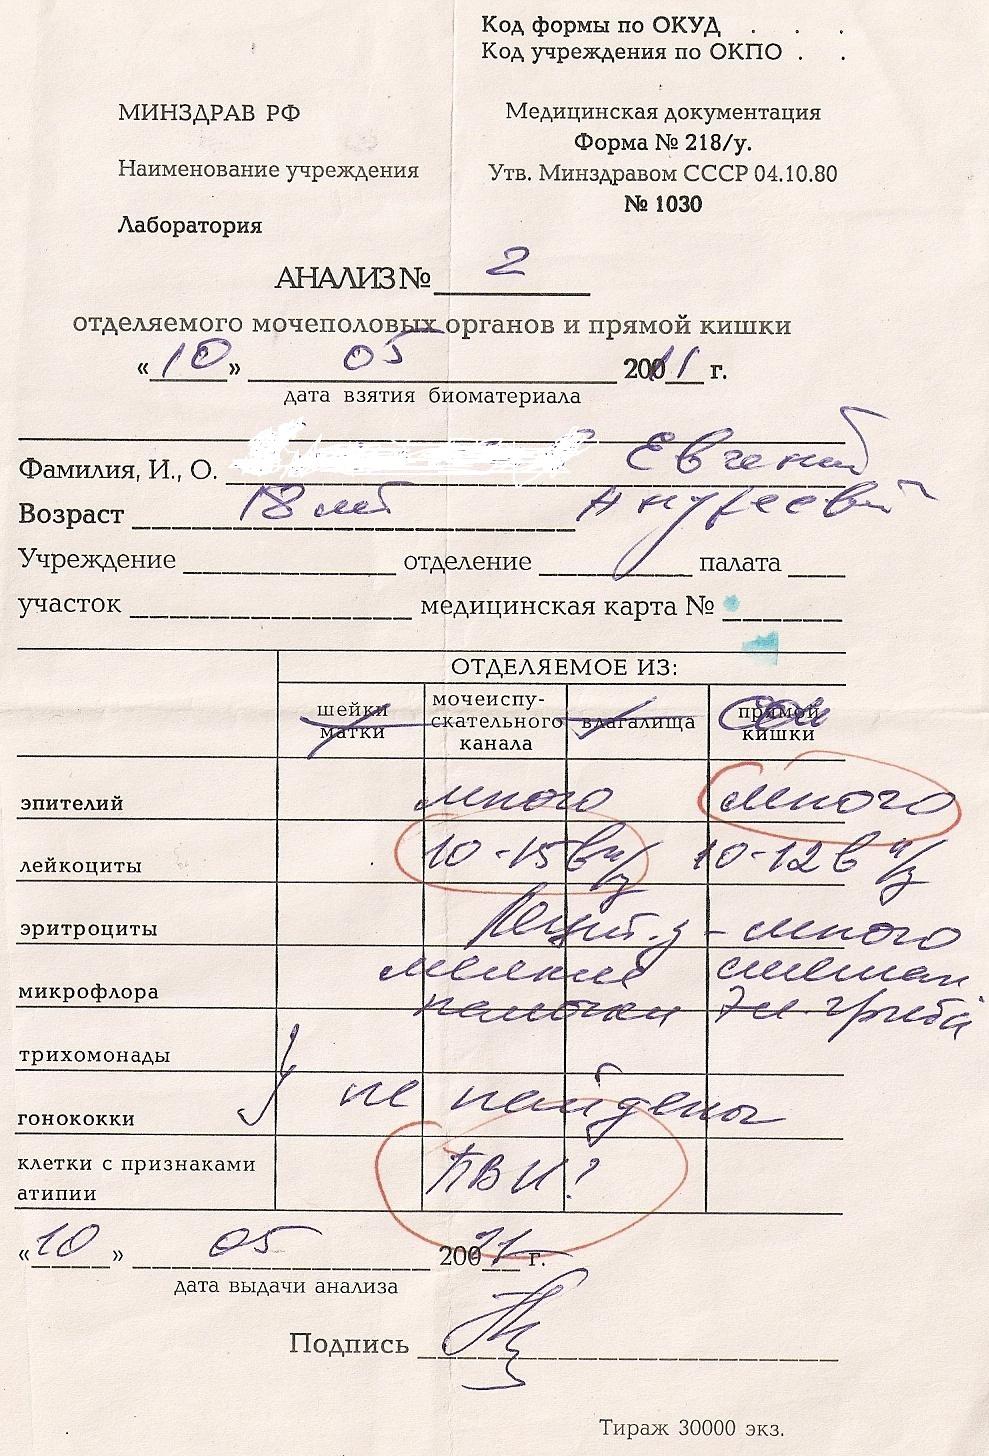 Код формы по ОКУД . . .
Код учреждения по ОКПО . .
МИНЗДРАВ РФ
Медицинская документация
Форма № 218/у.
Наименование учреждения
Утв. Минздравом СССР 04.10.80
№ 1030
Лаборатория
АНАЛИЗ № 2
отделяемого мочеполовых органов и прямой кишки
«10» 05 20011 г.
дата взятия биоматериала
Фамилия, И., О. Евгений
Возраст 18 лет Андреевич
Учреждение отделение палата
участок медицинская карта №
ОТДЕЛЯЕМОЕ ИЗ:
шейки матки
мочеиспу-
скательного
канала
влагалища
прямой
кишки
эпителий много много
лейкоциты 10-15 в п/з 10-12 в п/з
эритроциты - много
микрофлора мелкие палочки смешан эл. грибы
трихомонады
гонококки не найдены
клетки с признаками
атипии ПВИ?
«10» 05 20011 г.
дата выдачи анализа
Подпись
Тираж 30000 экз.